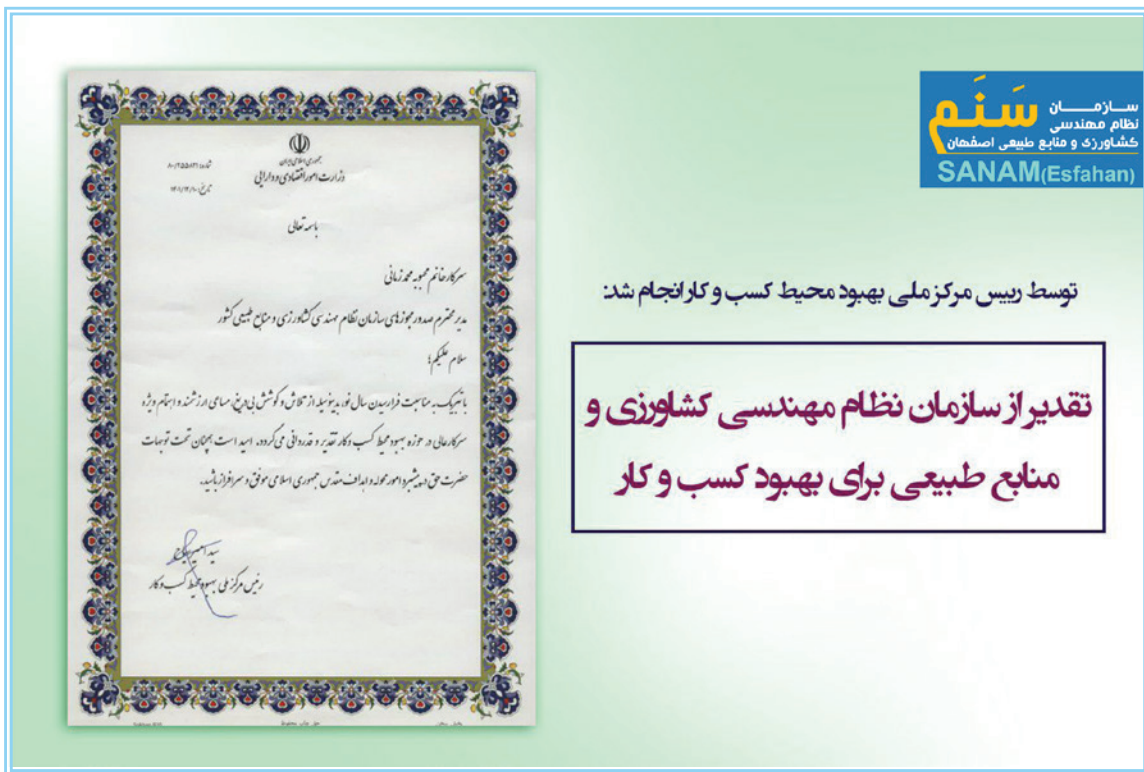 سازمان سَنَم
نظام مهندسی
کشاورزی و منابع طبیعی اصفهان
SANAM(Esfahan)
توسط رییس مرکز ملی بهبود محیط کسب و کار انجام شد:
تقدیر از سازمان نظام مهندسی کشاورزی و
منابع طبیعی برای بهبود کسب و کار
جمهوری اسلامی ایران
وزارت امور اقتصادی و دارایی
شماره: ۸۰/۲۵۵۸۳۱
تاریخ: ۱۴۰۱/۱۲/۱۰
باسمه تعالی
سرکار خانم محبوبه محمدزمانی
مدیر محترم صدور مجوزهای سازمان نظام مهندسی کشاورزی و منابع طبیعی کشور
سلام علیکم؛
با تبریک به مناسبت فرارسیدن سال نو، بدینوسیله از تلاش و کوشش بی‌دریغ، مساعی ارزشمند و اهتمام ویژه
سرکارعالی در حوزه بهبود محیط کسب و کار تقدیر و قدردانی می‌گردد. امید است همچنان تحت توجهات
حضرت حق در پیشبرد امور محوله و اهداف مقدس جمهوری اسلامی موفق و سرافراز باشید.
سید امیر
رئیس مرکز ملی بهبود محیط کسب و کار